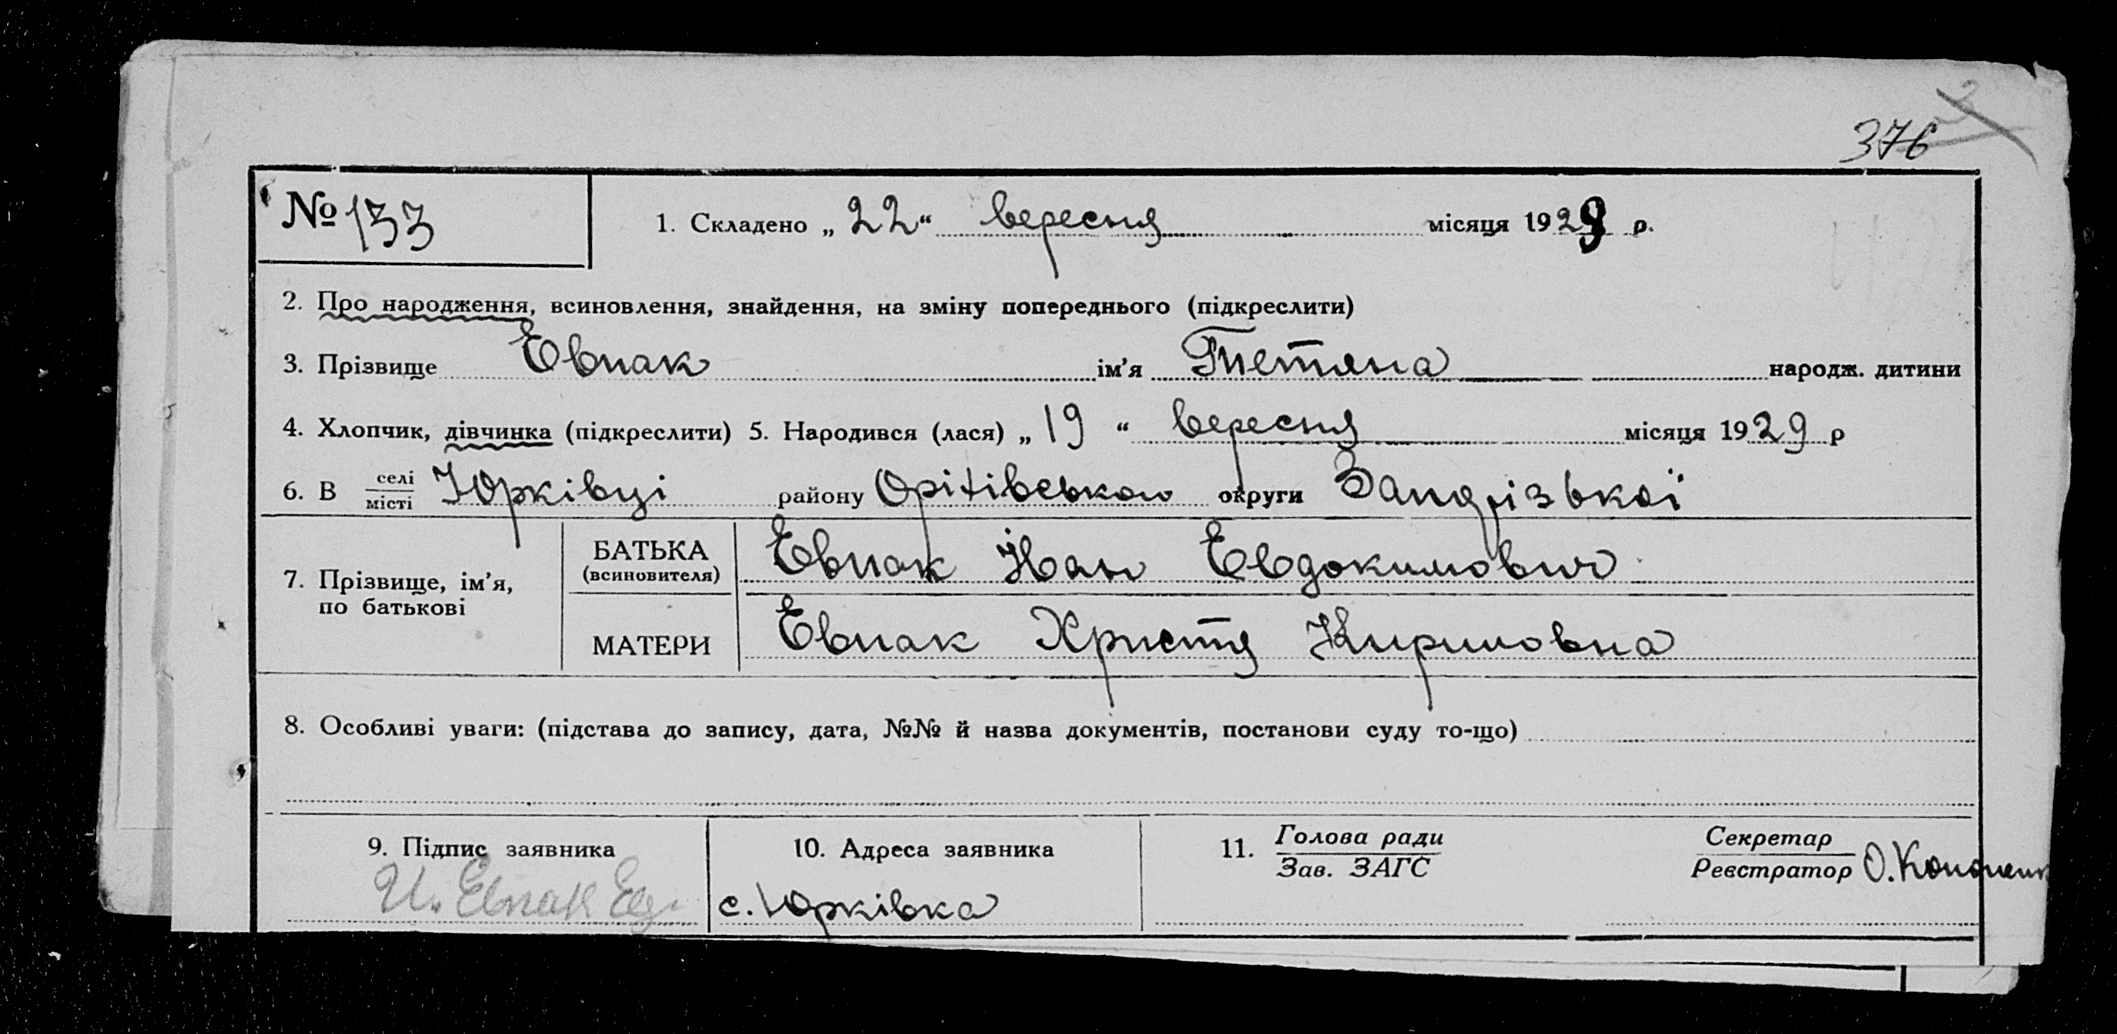 376
№ 133 1. Складено „22“ вересня місяця 1929 р.
2. Про народження, всиновлення, знайдення, на зміну попереднього (підкреслити)
3. Прізвище Евпак ім’я Тетяна народж. дитини
4. Хлопчик, дівчинка (підкреслити) 5. Народився (лася) „19“ вересня місяця 1929 р
6. В селі/місті Юрківці району Оріхівського округи Запорізької
7. Прізвище, ім’я, по батькові
БАТЬКА (всиновителя) Евпак Йван Евдокимович
МАТЕРИ Евпак Христя Кириловна
8. Особливі уваги: (підстава до запису, дата, №№ й назва документів, постанови суду то-що)
9. Підпис заявника 10. Адреса заявника 11. Голова ради/Зав. ЗАГС Секретар/Реєстратор О. Кононенк
И. Евпак с. Юрківка